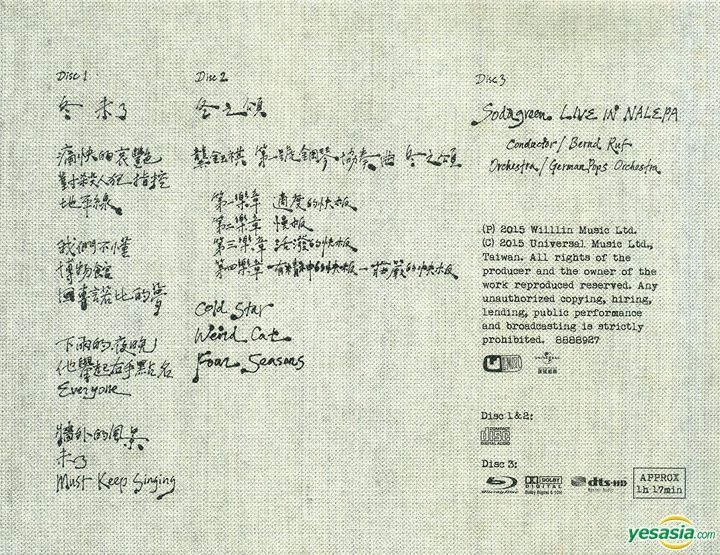 Disc 1
冬 未了
痛快的哀艷
對殺人犯指控
地平線
我們不懂
博物館
因專諾比的夢
下雨的夜晚
他舉起右手點名
Everyone
牆外的風景
未了
Must Keep Singing
Disc 2
冬之頌
龔鈺祺 第一號鋼琴協奏曲 冬之頌
第一樂章 適度的快板
第二樂章 慢板
第三樂章 活潑的快板
第四樂章 有精神的快板-莊嚴的快板
Cold Star
Weird Cat
Four Seasons
Disc 3
Sodagreen LIVE IN NALEPA
Conductor/ Bernd Ruf
Orchestra/ GermanPops Orchestra
(P) 2015 Willlin Music Ltd.
(C) 2015 Universal Music Ltd.,
Taiwan. All rights of the
producer and the owner of the
work reproduced reserved. Any
unauthorized copying, hiring,
lending, public performance
and broadcasting is strictly
prohibited. 8888927
UNIVERSAL
環球唱片
Disc 1&2:
COMPACT disc
DIGITAL AUDIO
Disc 3:
Blu-ray Disc
DOLBY
DIGITAL
Dolby Digital 5.1CH
dts-HD
Master Audio
APPROX
1h 17min
yesasia.com